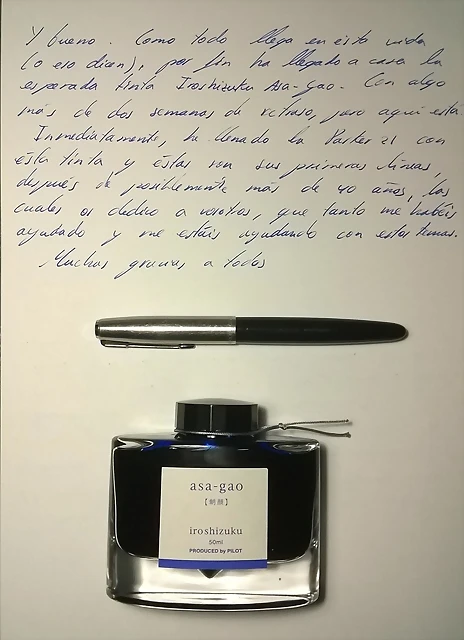 Y bueno. Como todo llega en esta vida
(o eso dicen), por fin ha llegado a casa la
esperada tinta Iroshizuku Asa-Gao. Con algo
más de dos semanas de retraso, pero aquí está.
Inmediatamente, he llenado la Parker 21 con
esta tinta y éstas son sus primeras líneas,
después de posiblemente más de 40 años, las
cuales os dedico a vosotros, que tanto me habéis
ayudado y me estáis ayudando con estos temas.
Muchas gracias a todos
asa-gao
【朝顔】
iroshizuku
50ml
PRODUCED by PILOT